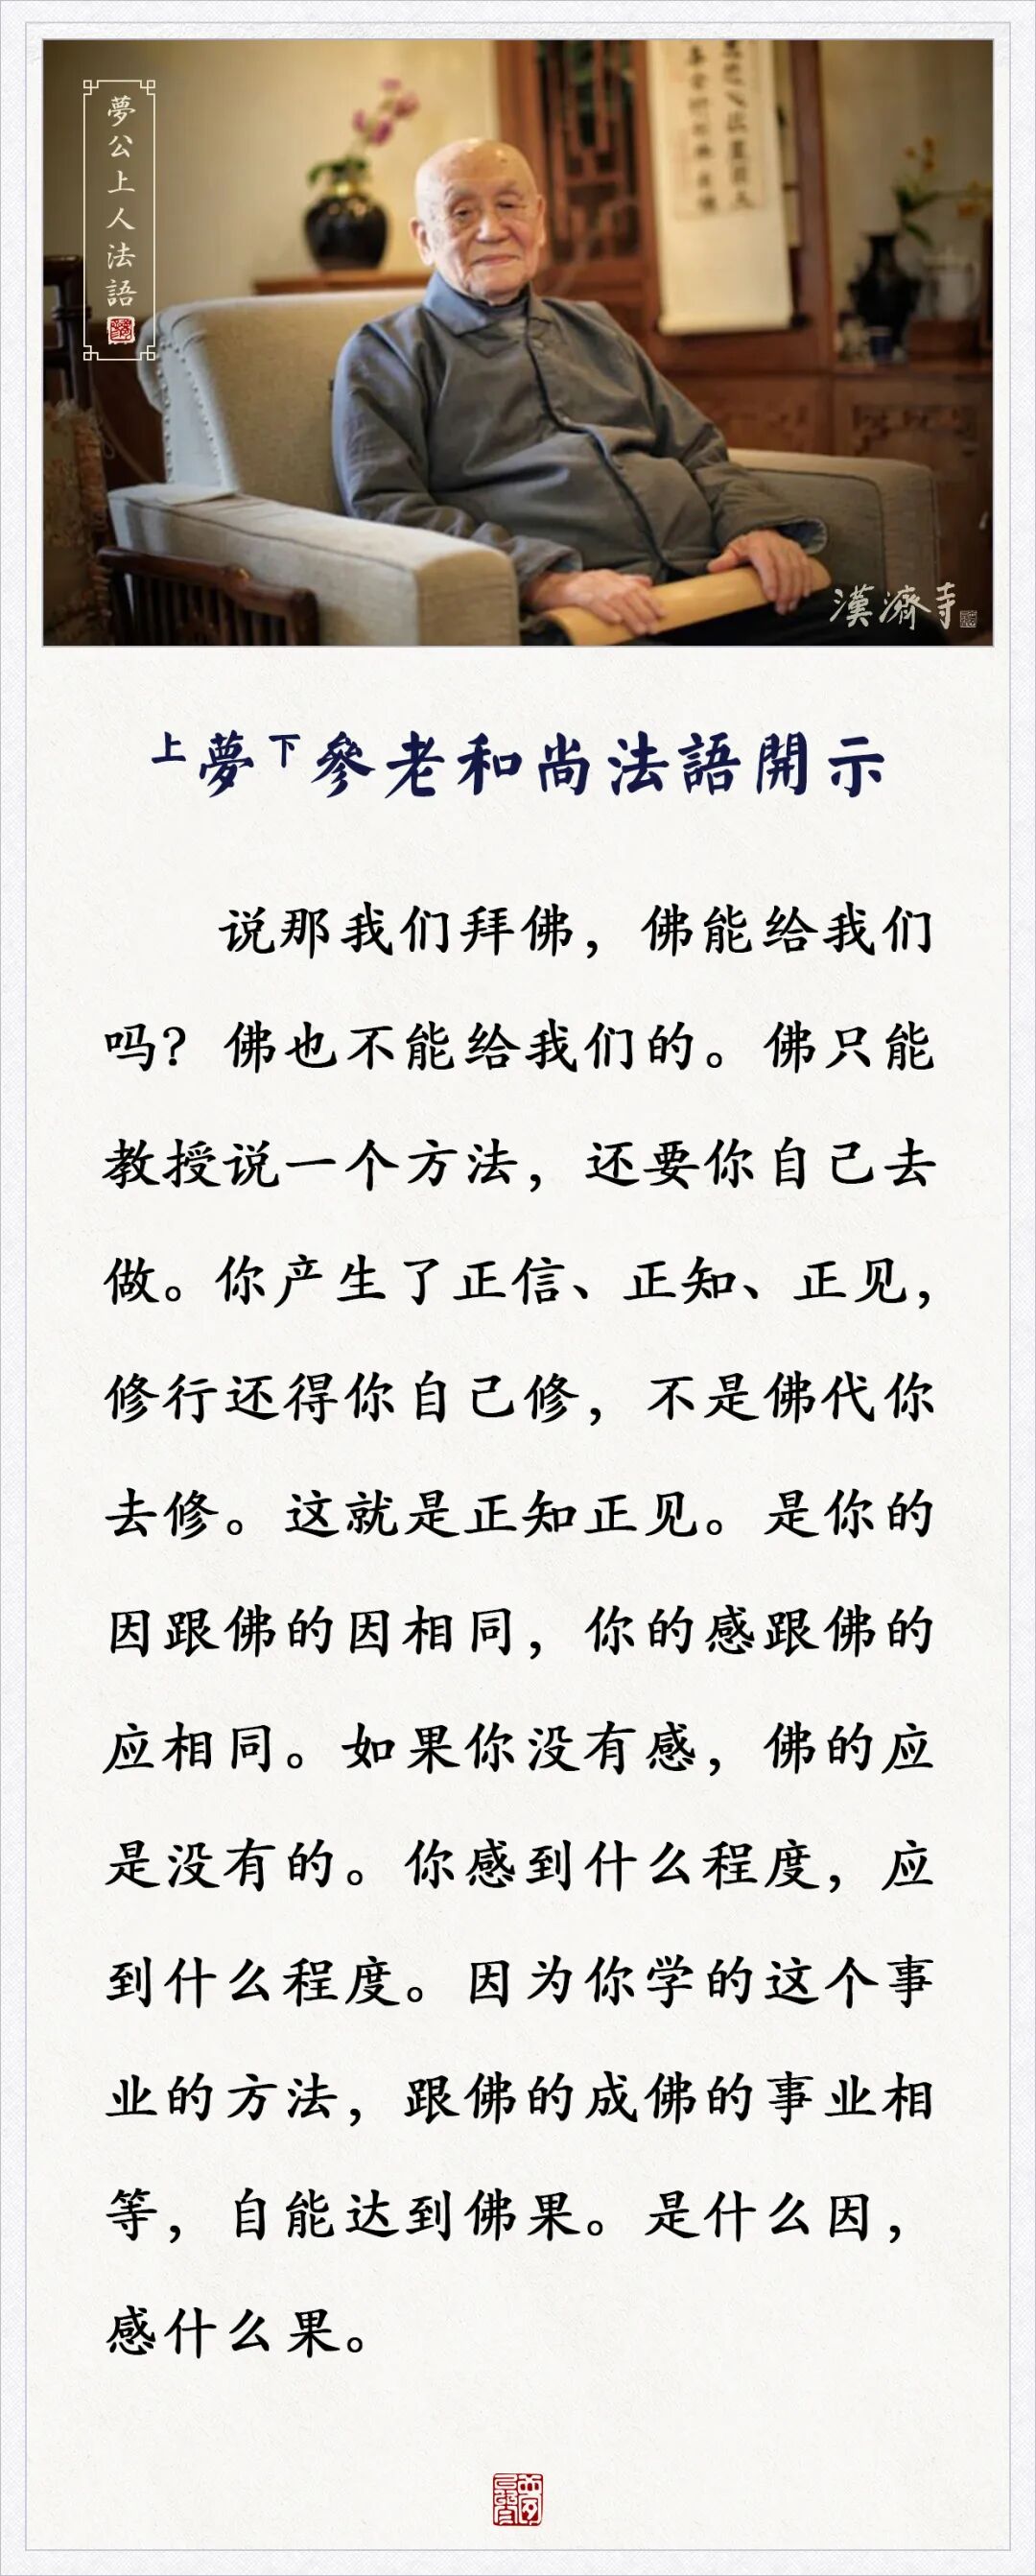 夢公上人法語
漢濟寺
上夢下參老和尚法語開示
说那我们拜佛，佛能给我们
吗？佛也不能给我们的。佛只能
教授说一个方法，还要你自己去
做。你产生了正信、正知、正见，
修行还得你自己修，不是佛代你
去修。这就是正知正见。是你的
因跟佛的因相同，你的感跟佛的
应相同。如果你没有感，佛的应
是没有的。你感到什么程度，应
到什么程度。因为你学的这个事
业的方法，跟佛的成佛的事业相
等，自能达到佛果。是什么因，
感什么果。